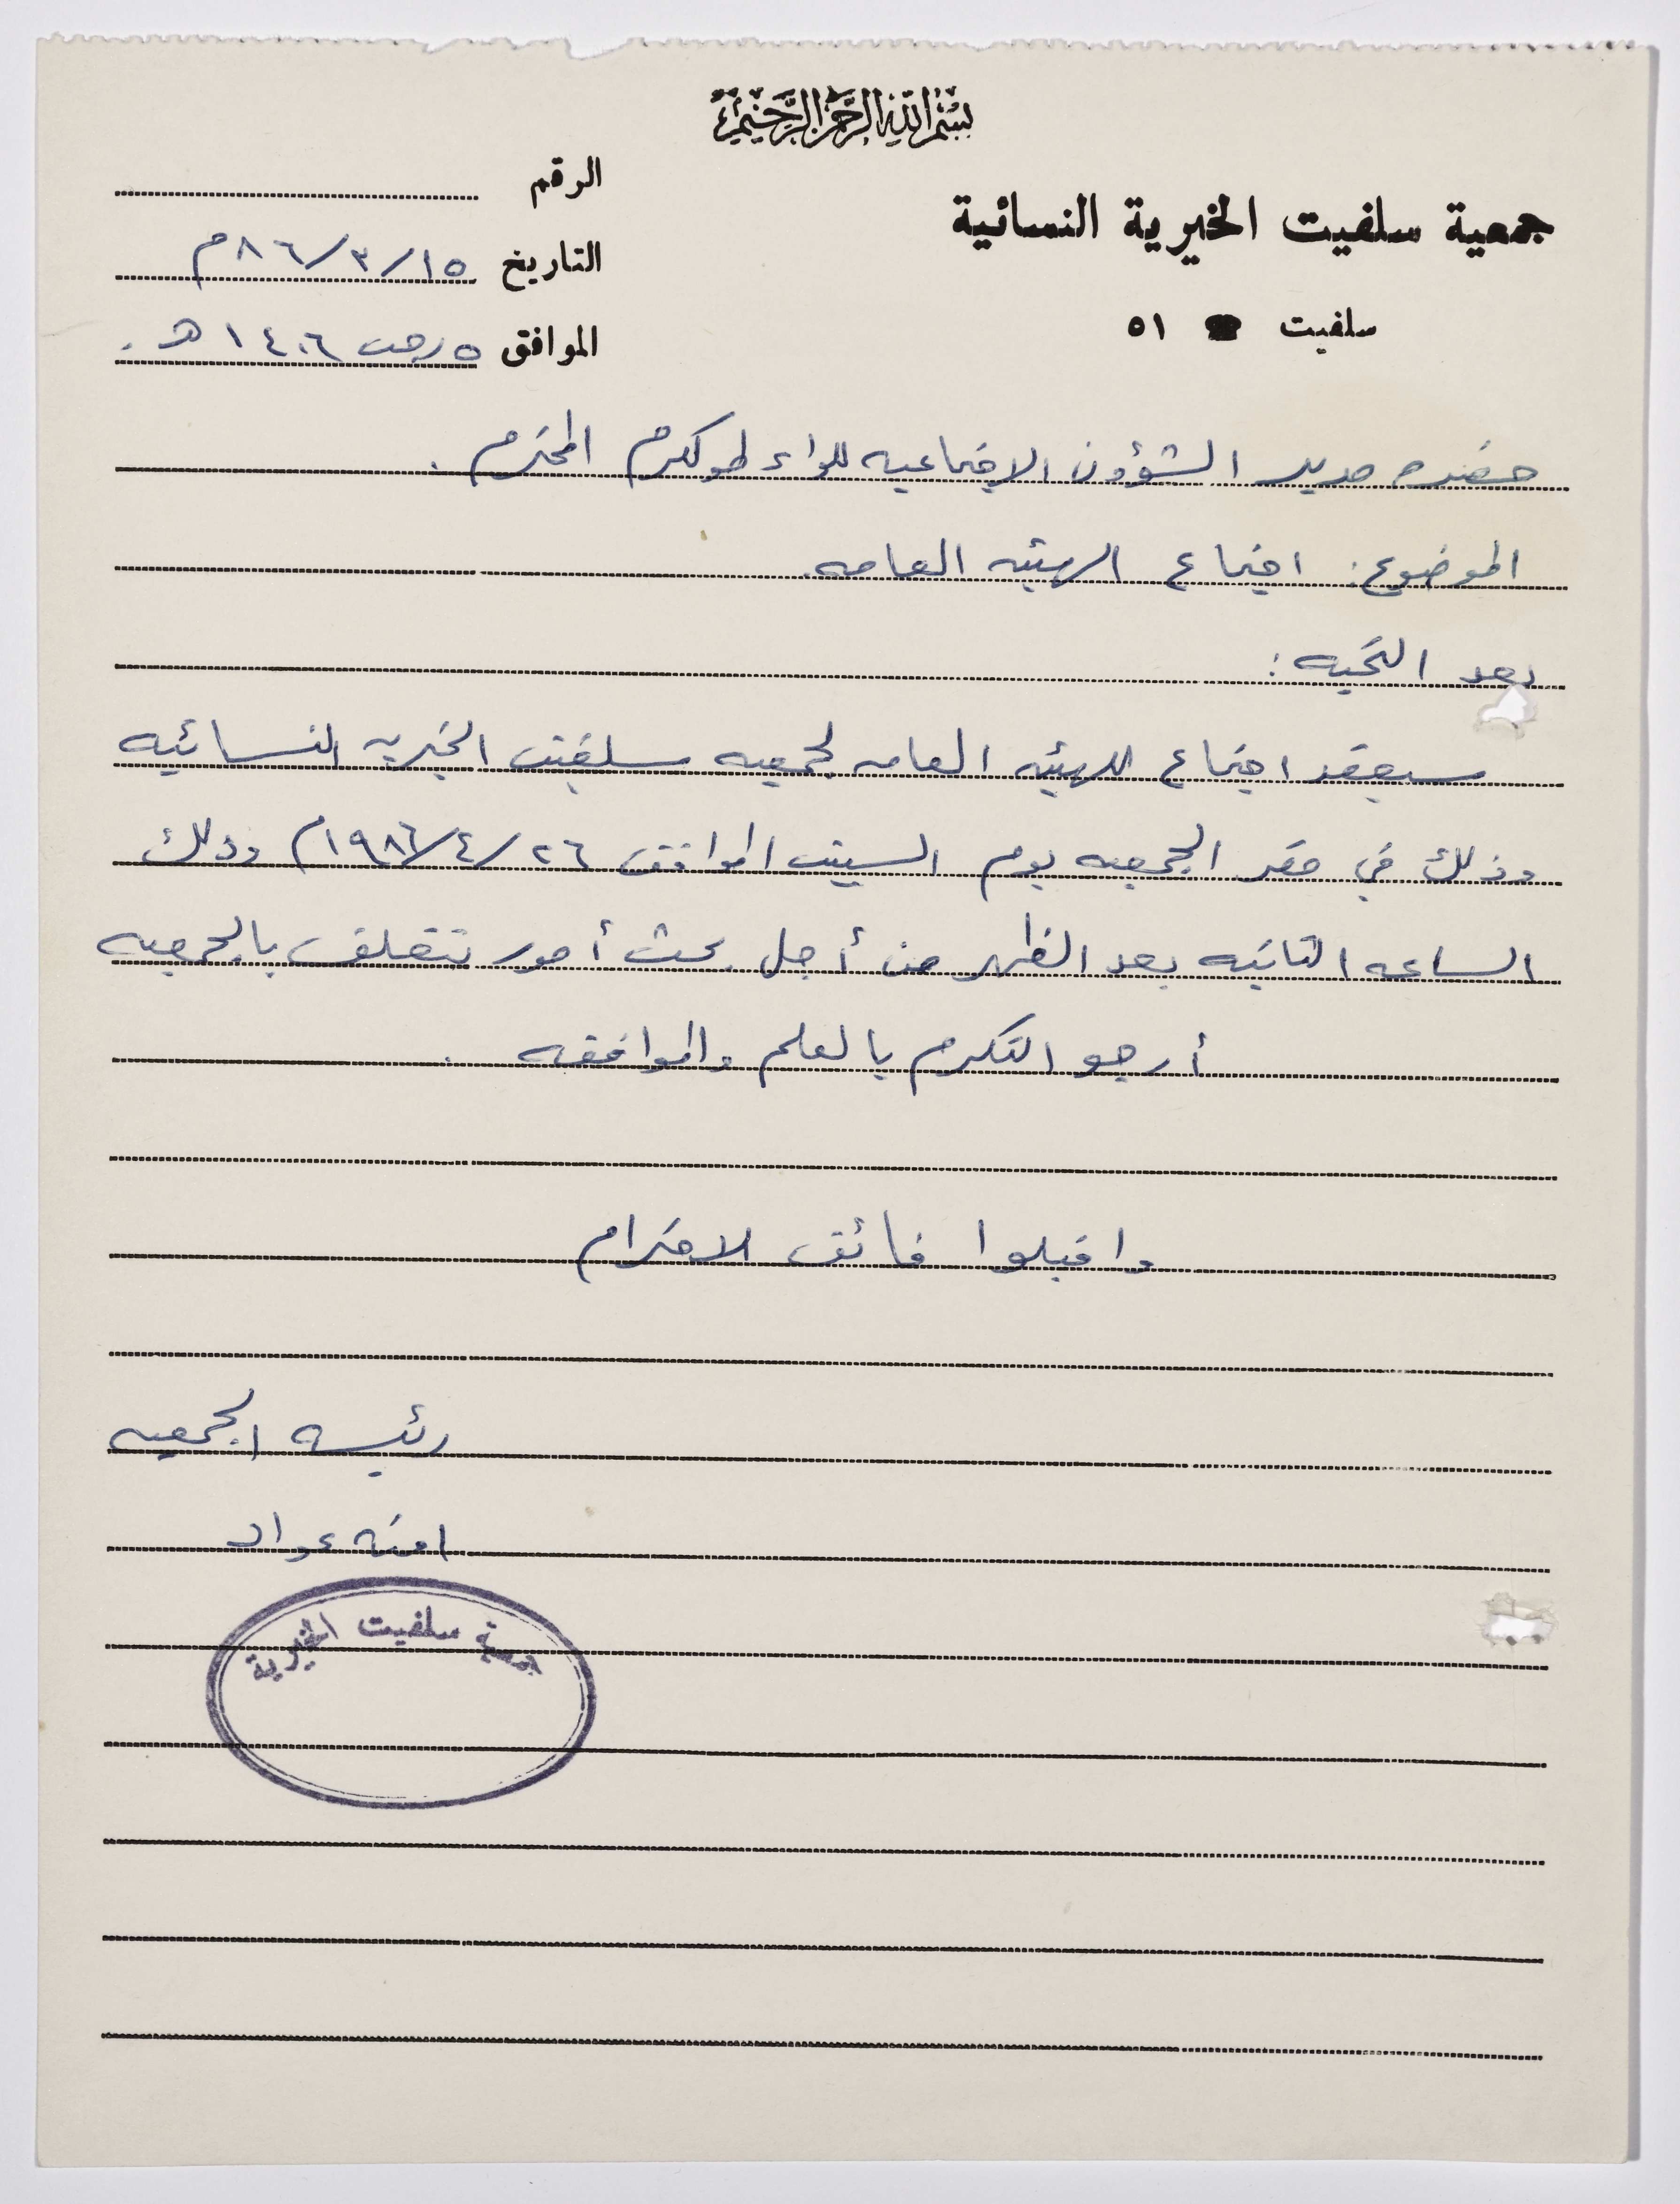 بسم الله الرحمن الرحيم
جمعية سلفيت الخيرية النسائية
سلفيت ☎ ٥١
الرقم
التاريخ ١٥/٣/٨٦م
الموافق ٥ رجب ١٤٠٦ هـ.
حضره مدير الشؤون الاجتماعيه للواء طولكرم المحترم.
الموضوع: اجتماع الهيئه العامه.
بعد التحيه:
سيعقد اجتماع للهيئه العامه لجمعيه سلفيت الخيريه النسائيه
وذلك في مقر الجمعيه يوم السبت الموافق ٢٦/٤/١٩٨٦م وذلك
الساعه الثانيه بعد الظهر من أجل بحث أمور تتعلق بالجمعيه
أرجو التكرم بالعلم والموافقه.
واقبلوا فائق الاحترام
رئيسه الجمعيه
امنه عواد
جمعية سلفيت الخيرية